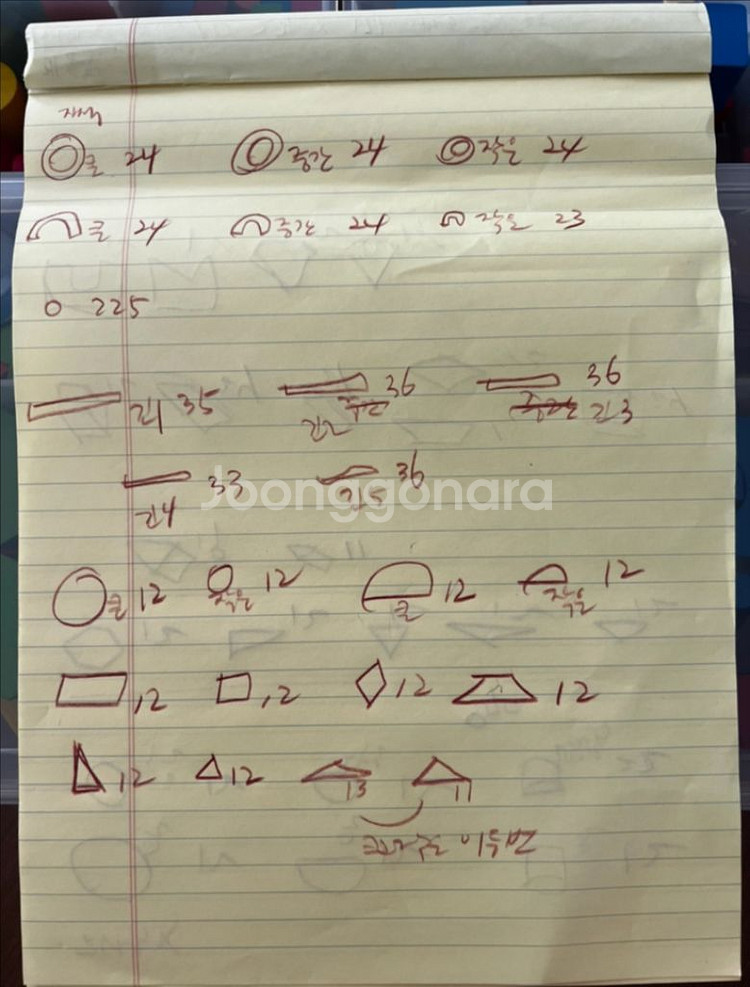 큰 24 중간 24 작은 24
큰 24 중간 24 작은 23
225
긴1 35 긴2 36 긴3 36
긴4 33 긴5 36
Joonggonara
큰 12 작은 12 큰 12 작은 12
12 12 12 12
12 12 13 11